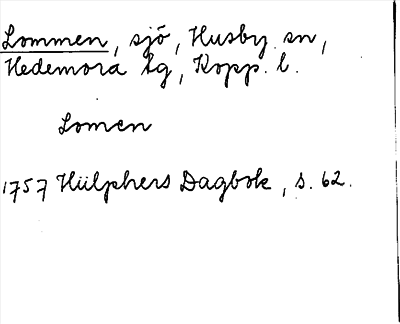 Lommen, sjö, Husby sn,
Hedemora tg, Kopp. l.
Lomen
1757 Hülphers Dagbok, s. 62.